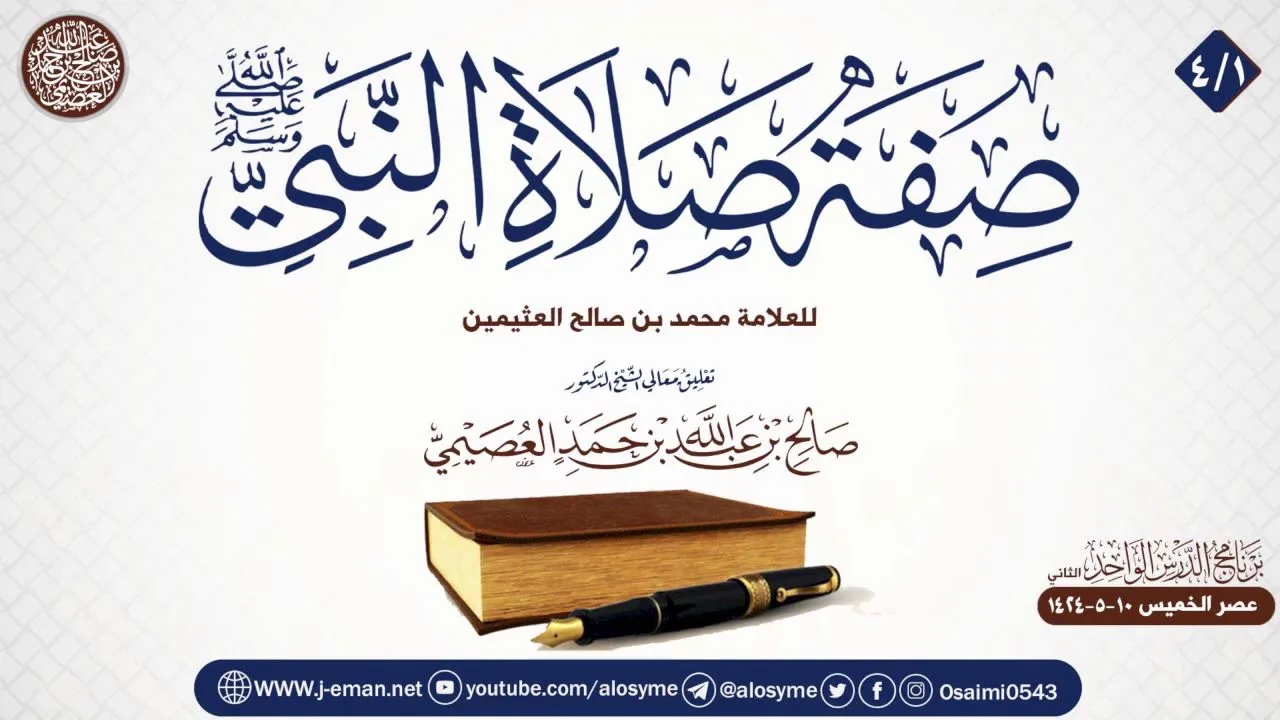 صِفَةُ صَلَاةِ النَّبِيِّ صَلَّى اللَّهُ عَلَيْهِ وَسَلَّمَ
٤/١
للعلامة محمد بن صالح العثيمين
تعْلِيقُ مَعَالي الشّيْخ الدّكتور
صَالِحِ بْنِ عَبْدِ اللَّهِ بْنِ حَمَدٍ العُصَيْمِيِّ
بَرْنَامَجُ الدَّرْسِ الوَاحِدِ الثاني
عصر الخميس ١٠-٥-١٤٢٤
WWW.j-eman.net youtube.com/alosyme @alosyme 0saimi0543